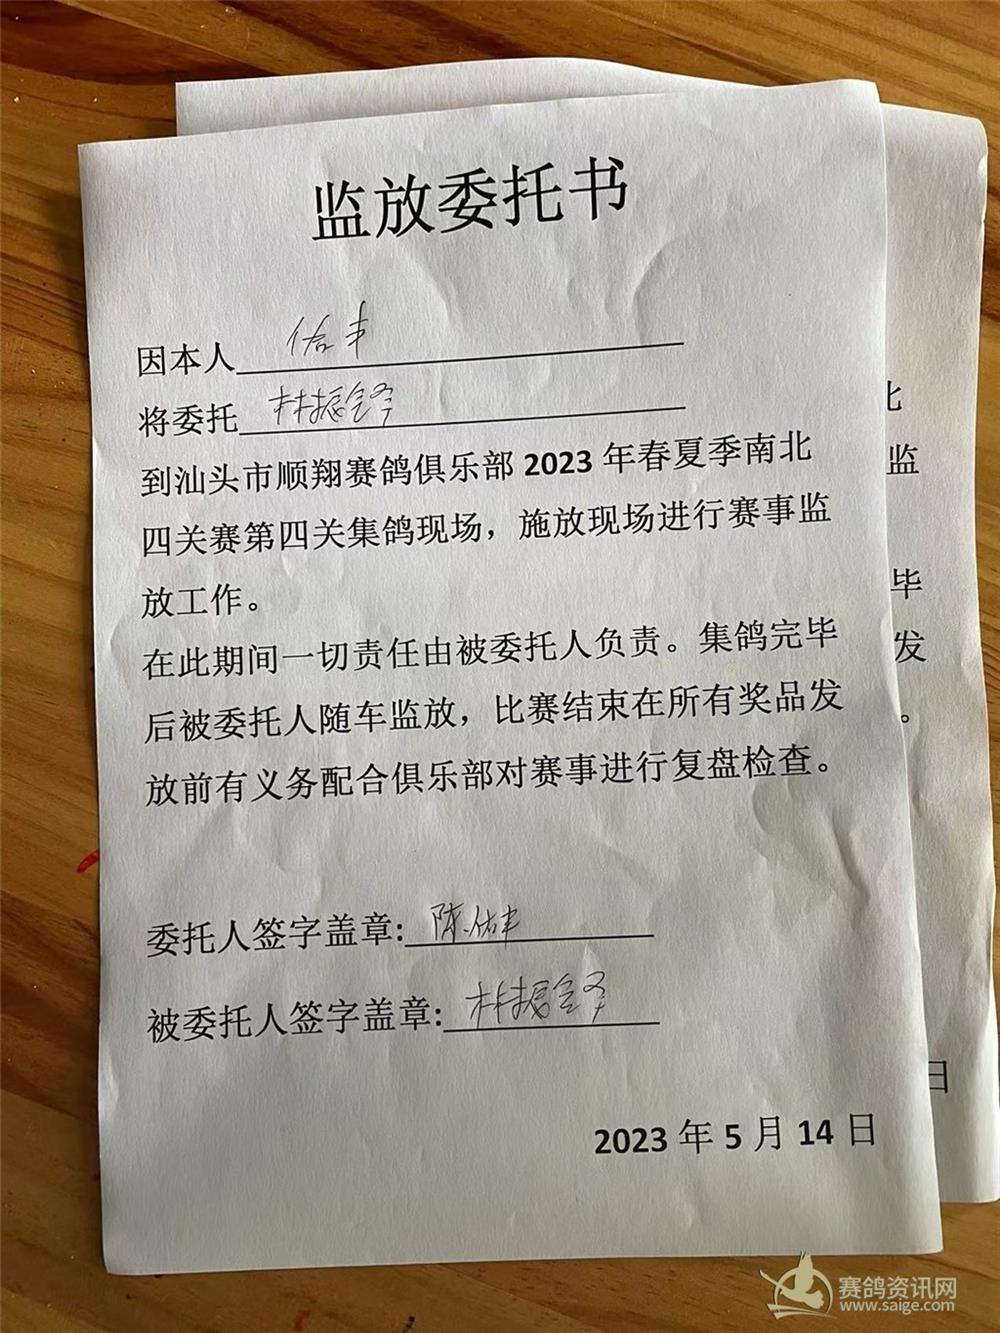 监放委托书
因本人 佑丰
将委托 林振铎
到汕头市顺翔赛鸽俱乐部 2023 年春夏季南北
四关赛第四关集鸽现场，施放现场进行赛事监
放工作。
在此期间一切责任由被委托人负责。集鸽完毕
后被委托人随车监放，比赛结束在所有奖品发
放前有义务配合俱乐部对赛事进行复盘检查。
委托人签字盖章: 陈佑丰
被委托人签字盖章: 林振铎
2023 年 5 月 14 日
北
监
毕
发
。
日
赛鸽资讯网
www.saige.com